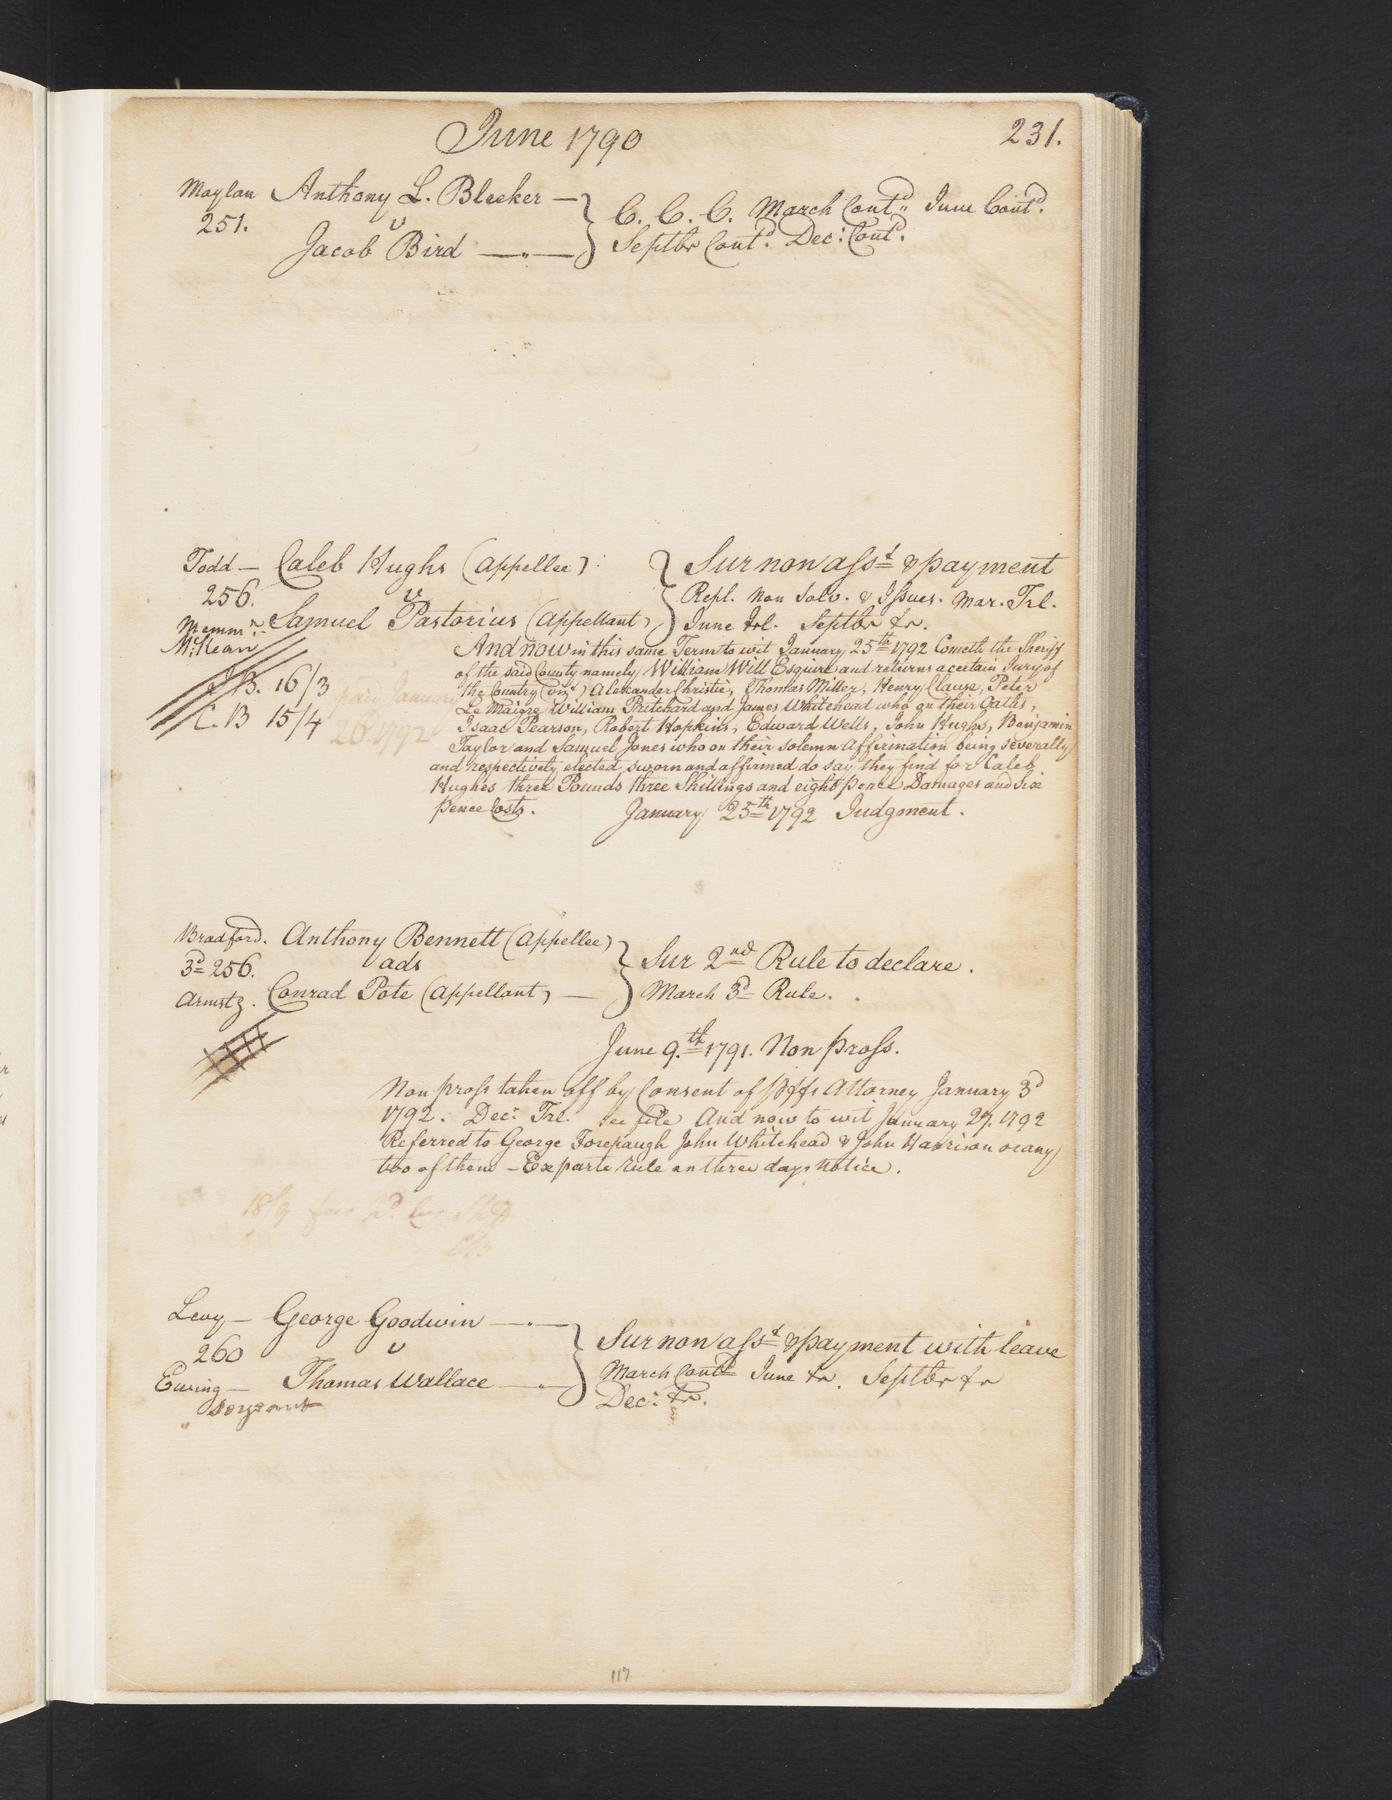 June 1790
231.
Moylan Anthony L. Bleeker —
251. v
Jacob Bird —
C. C. C. March Contd. June Contd.
Septbr Contd. Dec: Contd.
Todd — Caleb Hughs (Appellee)
256. v
Samuel Pastorius (Appellant)
McKean
J B. 16/3
C. B 15/4
paid January
26 1792
Sur non asst & payment
Repl. Non Solv. & Issues. Mar. Trl.
June trl. Septbr tr.
And now in this same Term to wit January 25th 1792 Cometh the Sheriff
of the said County namely William Will Esquire and returns a certain Jury of
the Country (vizt) Alexander Christie, Thomas Miller, Henry Clause, Peter
Le Maigre William Pritchard and James Whitehead who on their Oaths,
Isaac Pearson, Robert Hopkins, Edward Wells, John Hughs, Benjamin
Taylor and Samuel Jones who on their solemn affirmation being severally
and respectively elected sworn and affirmed do say they find for Caleb
Hughes three Pounds three Shillings and eight pence Damages and six
pence Costs.
January 25th 1792 Judgment.
Bradford. Anthony Bennett (Appellee)
3d 256. ads
Armstg. Conrad Pote (Appellant) —
Sur 2nd Rule to declare.
March 3d Rule.
June 9.th 1791. Non pross.
Non pross taken off by Consent of Plffs Attorney January 3d
1792. Decr. Trl. see file And now to wit January 27. 1792
Referred to George Forepaugh John Whitehead & John Harrison or any
two of them — Ex parte rule on three days notice.
18/9 fees pd. by
Levy — George Goodwin —
260 v
Ewing — Thomas Wallace —
Sergeant
Sur non asst & payment with leave
March Contd June tr. Septbr tr
Dec: tr.
117